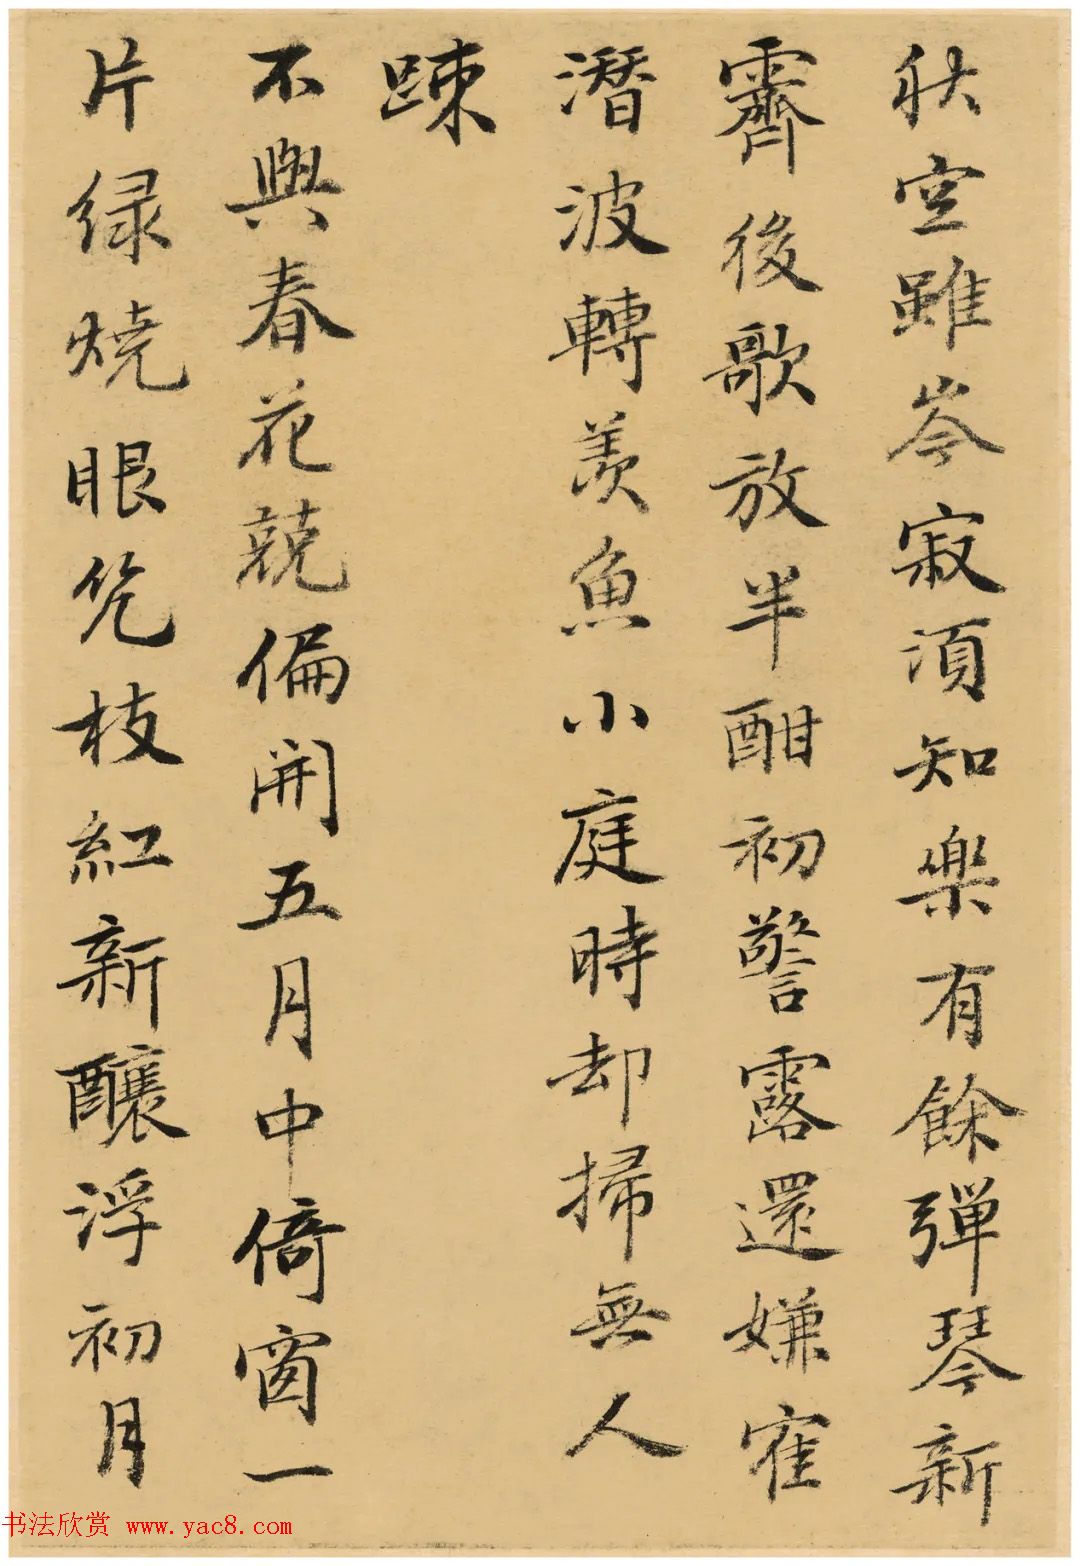 秋空雖岑寂須知樂有餘彈琴新
霽後歌放半酣初警露還嫌寉
潛波轉羨魚小庭時却掃無人
踈
不與春花競偏開五月中倚窗一
片緑燒眼凭枝紅新釀浮初月
书法欣赏 www.yac8.com